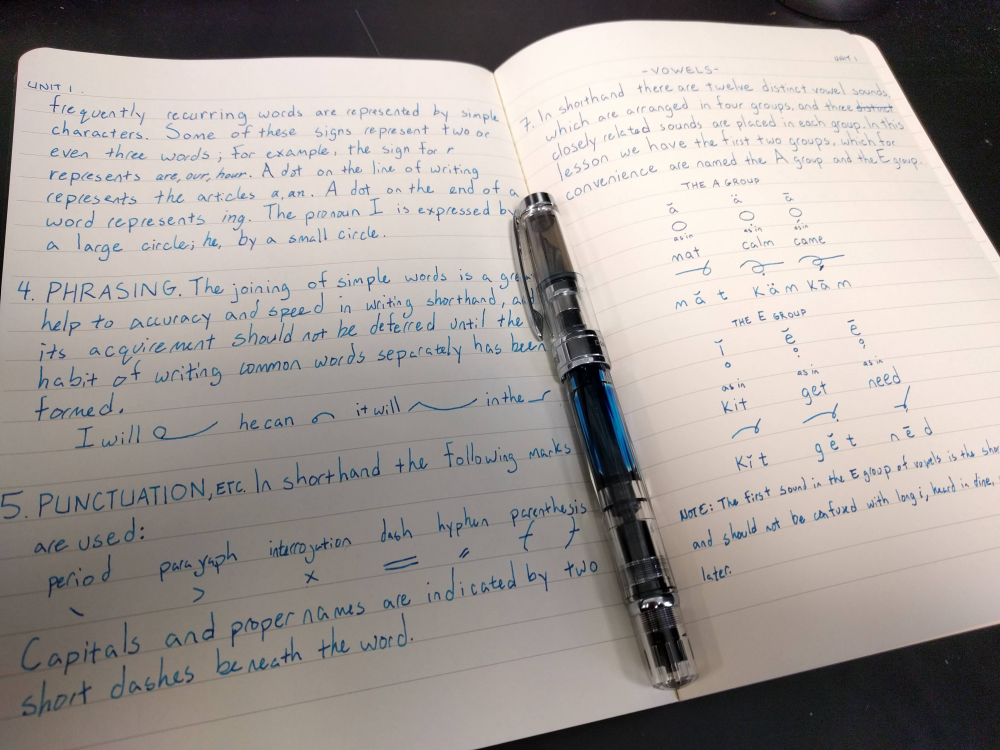 UNIT 1.
frequently recurring words are represented by simple
characters. Some of these signs represent two or
even three words; for example, the sign for r
represents are, our, hour. A dot on the line of writing
represents the articles a, an. A dot on the end of a
word represents ing. The pronoun I is expressed by
a large circle; he, by a small circle.
4. PHRASING. The joining of simple words is a
help to accuracy and speed in writing shorthand,
its acquirement should not be deferred until the
habit of writing common words separately has been
formed.
I will he can it will in the
5. PUNCTUATION, ETC. In shorthand the following marks
are used:
period paragraph interrogation dash hyphen parenthesis
Capitals and proper names are indicated by two
short dashes beneath the word.
UNIT 1
-VOWELS-
7. In shorthand there are twelve distinct vowel sounds,
which are arranged in four groups, and three distinct
closely related sounds are placed in each group. In this
lesson we have the first two groups, which for
convenience are named the A group and the E group.
THE A GROUP
ă ä ā
as in as in as in
mat calm came
m ă t k ä m k ā m
THE E GROUP
ĭ ĕ ē
as in as in as in
kit get need
k ĭ t g ĕ t n ē d
NOTE: The first sound in the E group of vowels is the
and should not be confused with long i, heard in dine,
later.